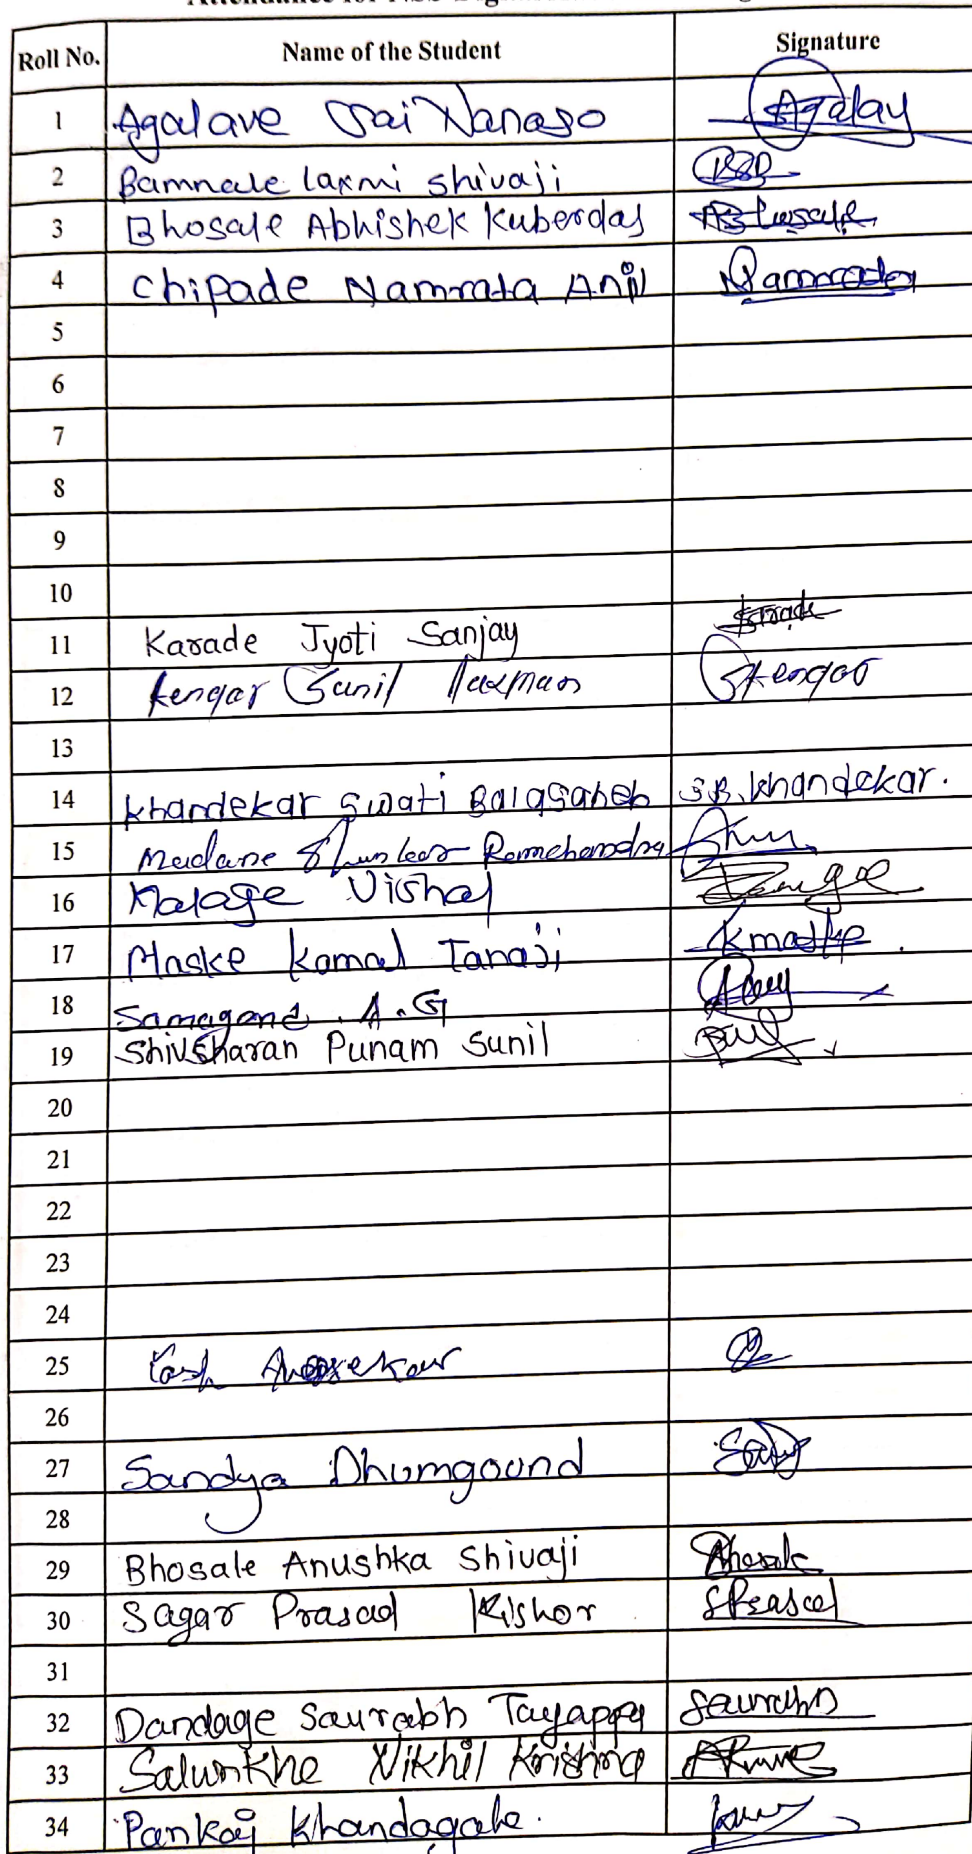 Roll No. Name of the Student Signature
1 Agalave Sai Nanaso Agalav
2 Bamnale laxmi shivaji
3 Bhosale Abhishek Kuberdas ABhosale
4 Chipade Namrata Anil Namrata
5
6
7
8
9
10
11 Karade Jyoti Sanjay
12 Kengar Sunil Laxman SKengar
13
14 Khandekar Swati Balasaheb S.B.Khandekar.
15 Madane Shankar Ramchandra
16 Malage Vishal
17 Maske Komal Tanaji
18 Samagond . A.G
19 Shivsharan Punam Sunil
20
21
22
23
24
25 Yash
26
27 Sandya Dhumgound
28
29 Bhosale Anushka Shivaji Bhosale
30 Sagar Prasad Kishor SPrasad
31
32 Dandage Saurabh Tayappa Saurabh
33 Salunkhe Nikhil Krishna
34 Pankaj Khandagale.